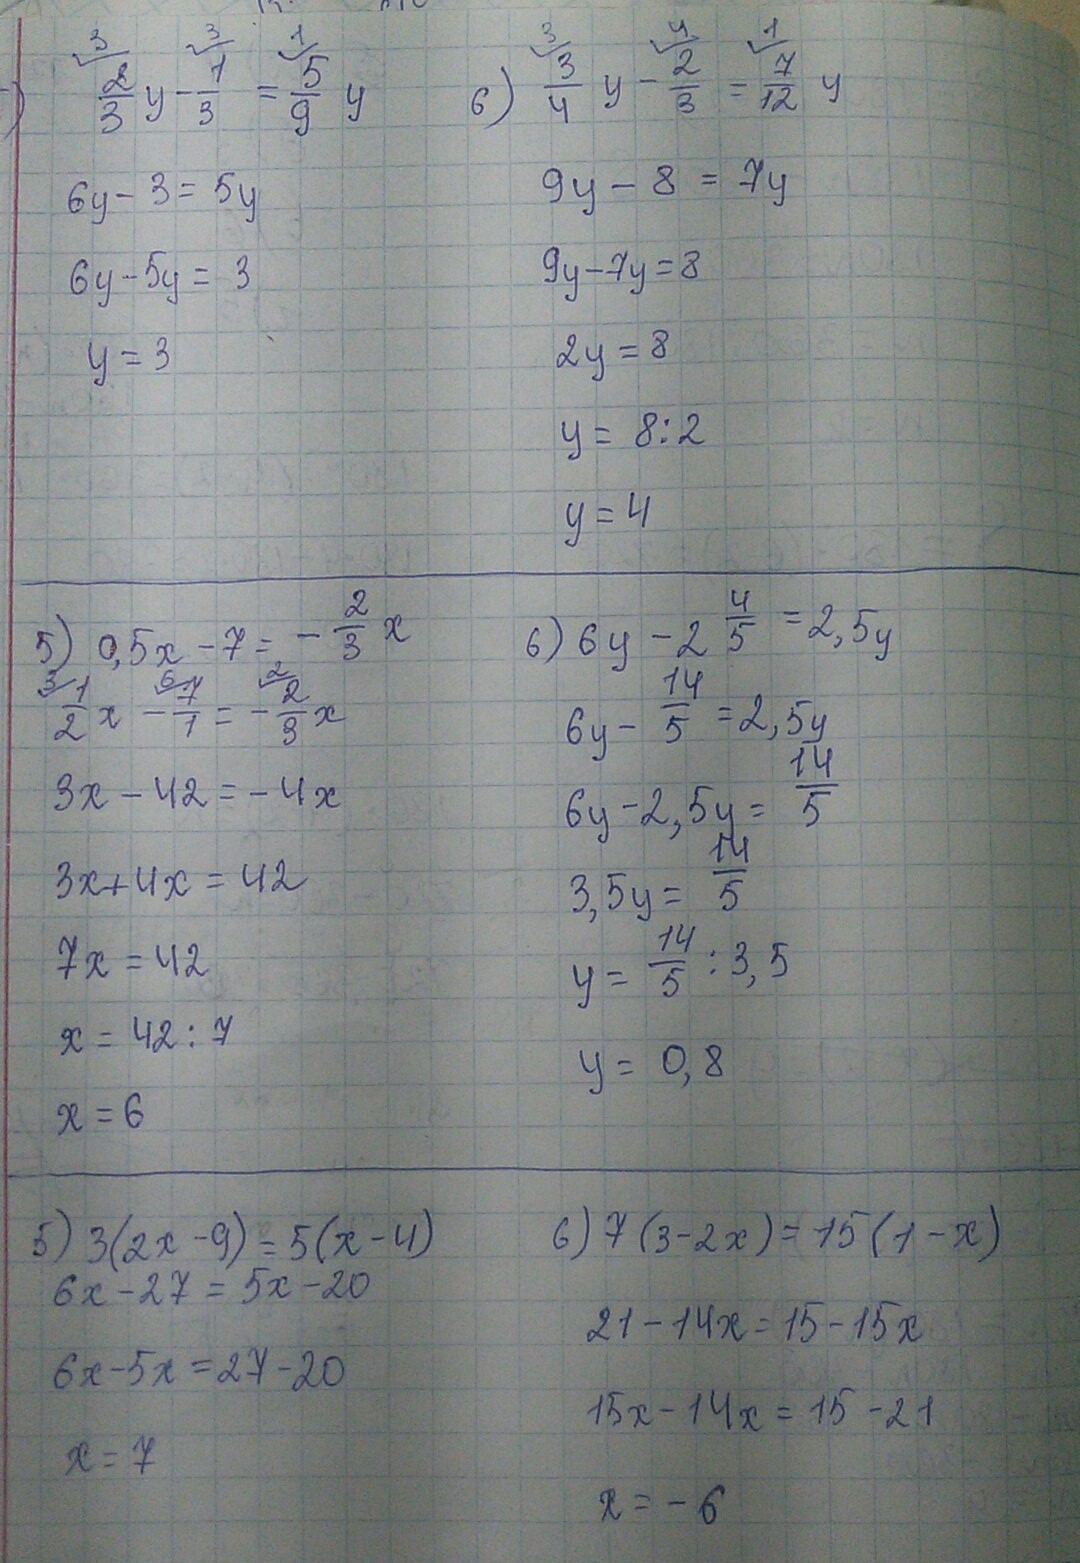 3 3 1
) 2/3 y - 1/3 = 5/9 y
6y - 3 = 5y
6y - 5y = 3
y = 3
3 4 1
6) 3/4 y - 2/3 = 7/12 y
9y - 8 = 7y
9y - 7y = 8
2y = 8
y = 8 : 2
y = 4
5) 0,5x - 7 = - 2/3 x
3 6 2
1/2 x - 7/1 = - 2/3 x
3x - 42 = - 4x
3x + 4x = 42
7x = 42
x = 42 : 7
x = 6
6) 6y - 2 4/5 = 2,5y
6y - 14/5 = 2,5y
6y - 2,5y = 14/5
3,5y = 14/5
y = 14/5 : 3,5
y = 0,8
5) 3(2x - 9) = 5(x - 4)
6x - 27 = 5x - 20
6x - 5x = 27 - 20
x = 7
6) 7(3 - 2x) = 15(1 - x)
21 - 14x = 15 - 15x
15x - 14x = 15 - 21
x = - 6